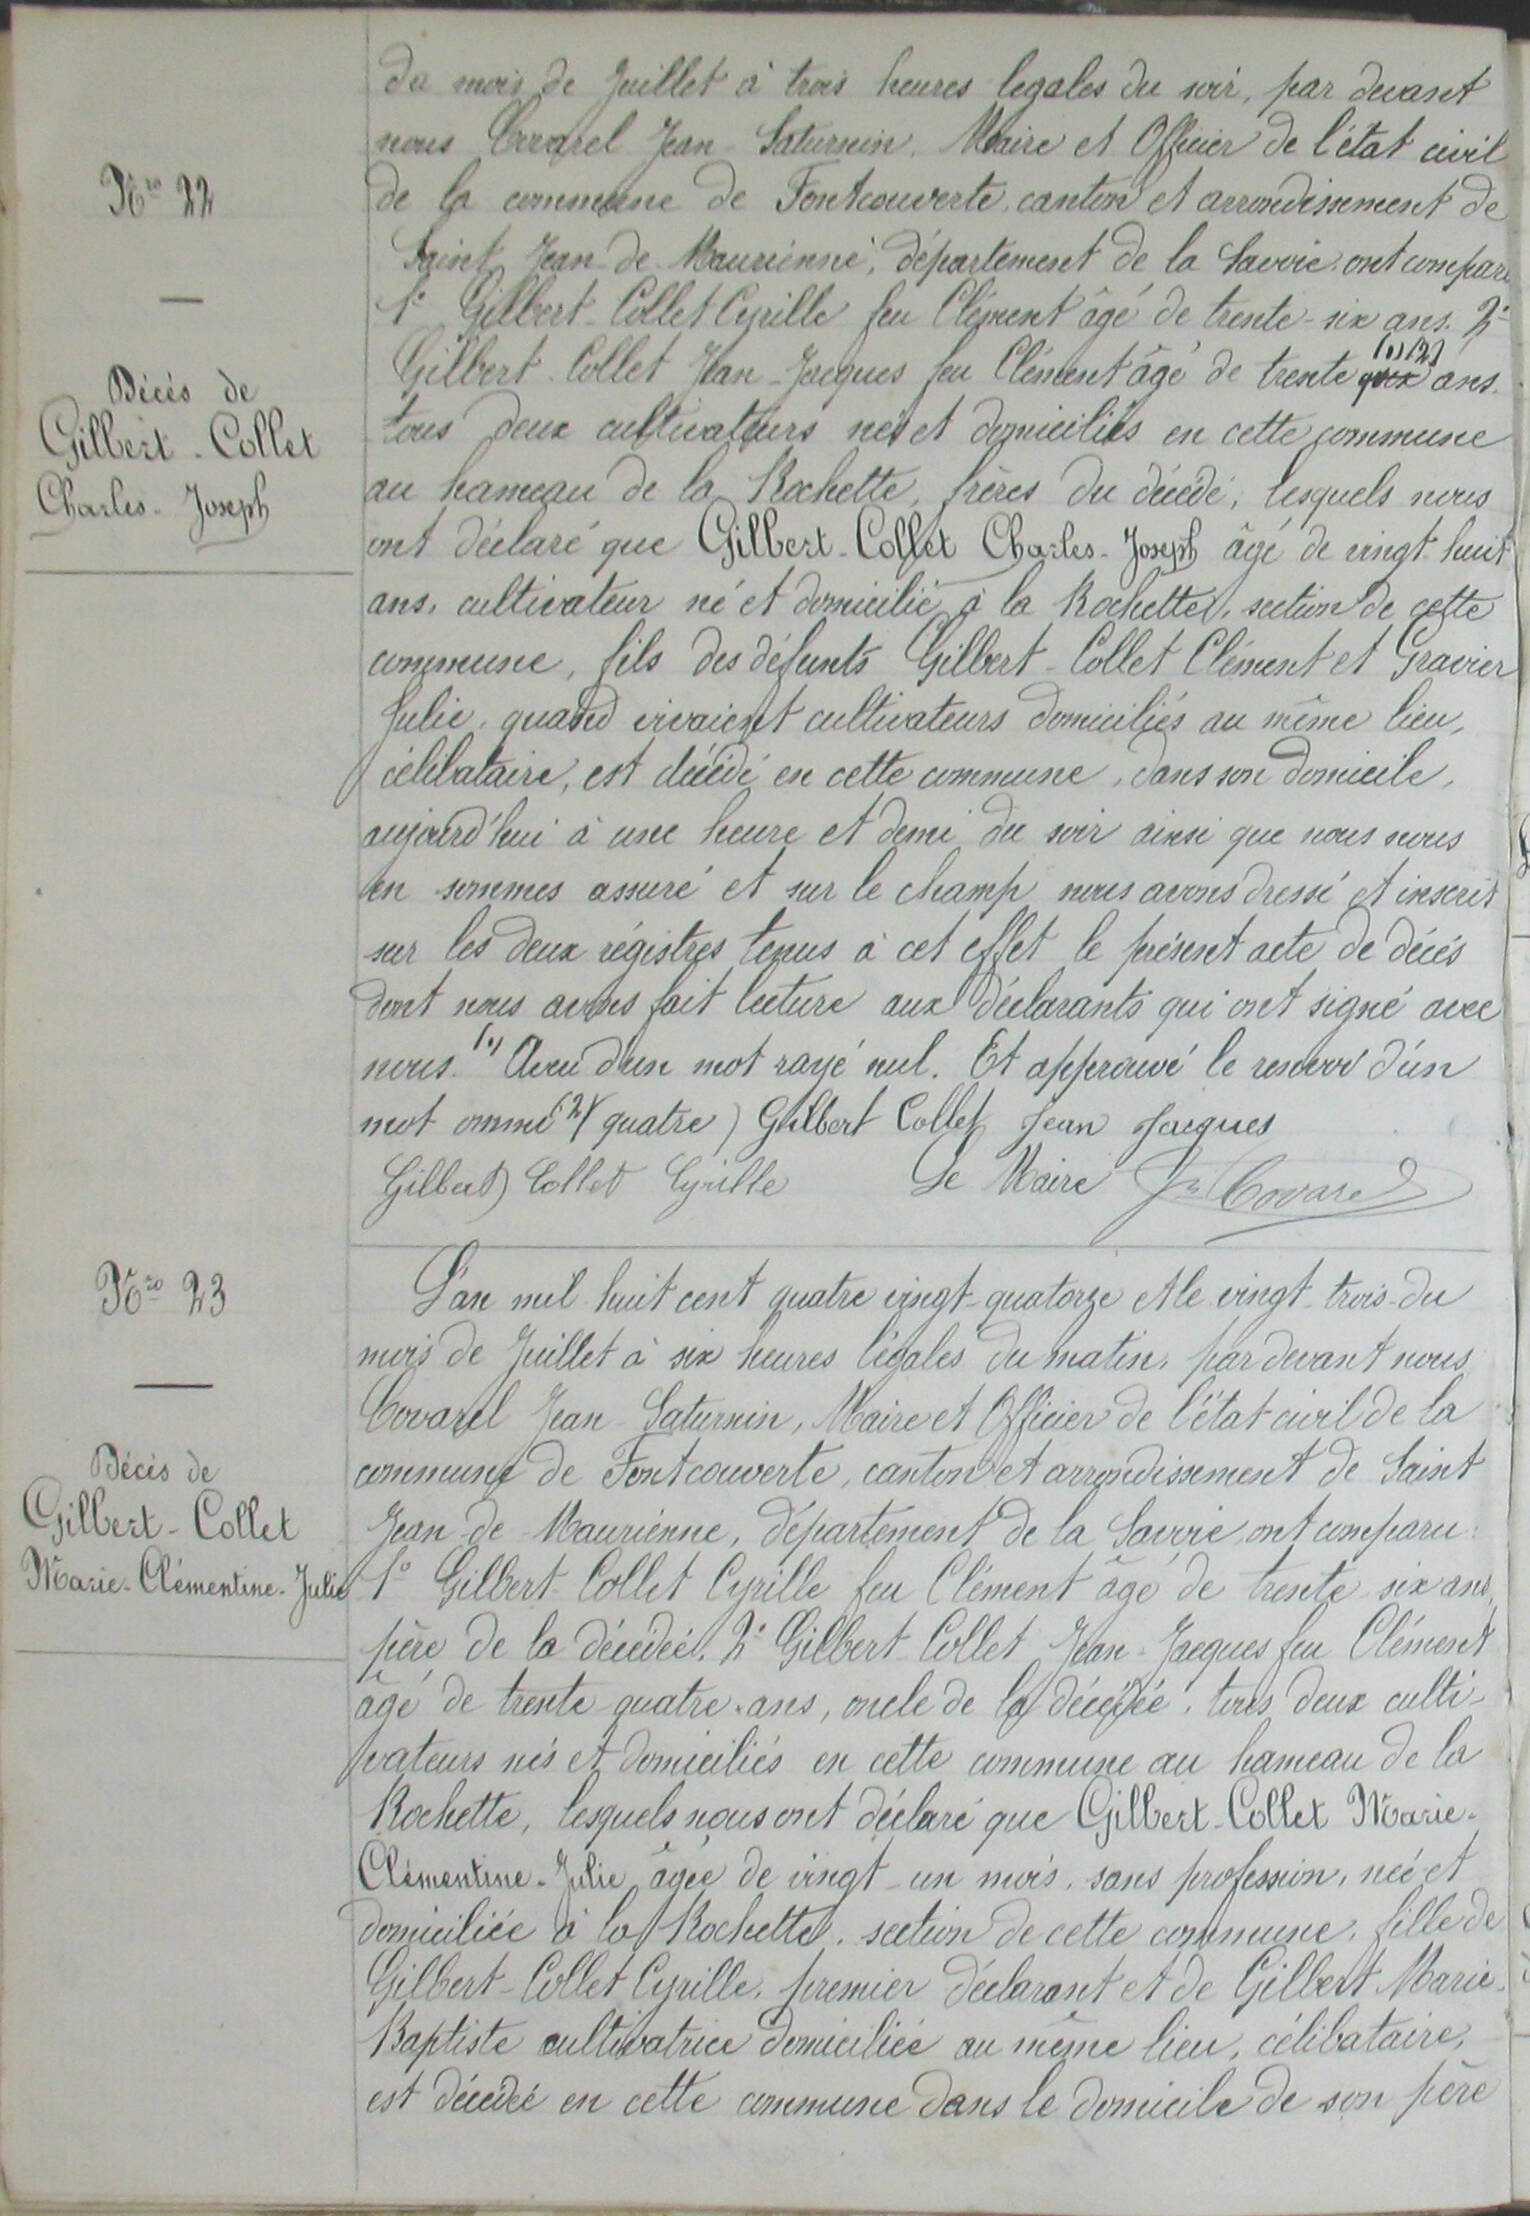 du mois de Juillet à trois heures legales du soir, par devant
nous Covarel Jean-Saturnin, Maire et Officier de l'état civil
de la commune de Fontcouverte, canton et arrondissement de
Saint Jean-de-Maurienne, département de la Savoie, ont comparu
1° Gilbert-Collet Cyrille feu Clément âgé de trente-six ans. 2°
Gilbert-Collet Jean-Jacques feu Clément âgé de trente (1) (2) ans.
tous deux cultivateurs nés et domiciliés en cette commune
au hameau de la Rochette, frères du décédé, lesquels nous
ont déclaré que Gilbert-Collet Charles-Joseph âgé de vingt-huit
ans, cultivateur né et domicilié à la Rochette, section de cette
commune, fils des défunts Gilbert-Collet Clément et Gravier
Julie, quand vivaient cultivateurs domiciliés au même lieu,
célibataire, est décédé en cette commune, dans son domicile,
aujourd'hui à une heure et demi du soir ainsi que nous nous
en sommes assuré et sur le champ nous avons dressé et inscrit
sur les deux régistres tenus à cet effet le présent acte de décès
dont nous avons fait lecture aux déclarants qui ont signé avec
nous. (1) Aveu d'un mot rayé nul. Et approuvé le renvoi d'un
mot ommi (2) (quatre) Gilbert Collet Jean Jacques
Gilbert Collet Cyrille Le Maire Jn Covarel
Nro 22
Décès de
Gilbert-Collet
Charles-Joseph
L'an mil huit cent quatre vingt-quatorze et le vingt-trois du
mois de Juillet à six heures légales du matin, par devant nous
Covarel Jean-Saturnin, Maire et Officier de l'état civil de la
commune de Fontcouverte, canton et arrondissement de Saint
Jean-de-Maurienne, département de la Savoie, ont comparu:
1° Gilbert-Collet Cyrille feu Clément âgé de trente-six ans,
père de la décédée. 2° Gilbert-Collet Jean-Jacques feu Clément
âgé de trente-quatre ans, oncle de la décédée, tous deux culti-
vateurs nés et domiciliés en cette commune au hameau de la
Rochette, lesquels nous ont déclaré que Gilbert-Collet Marie-
Clémentine-Julie âgée de vingt-un mois, sans profession, née et
domiciliée à la Rochette, section de cette commune, fille de
Gilbert-Collet Cyrille, premier déclarant et de Gilbert Marie-
Baptiste cultivatrice domiciliée au même lieu, célibataire,
est décédée en cette commune dans le domicile de son père
Nro 23
Décès de
Gilbert-Collet
Marie-Clémentine-Julie